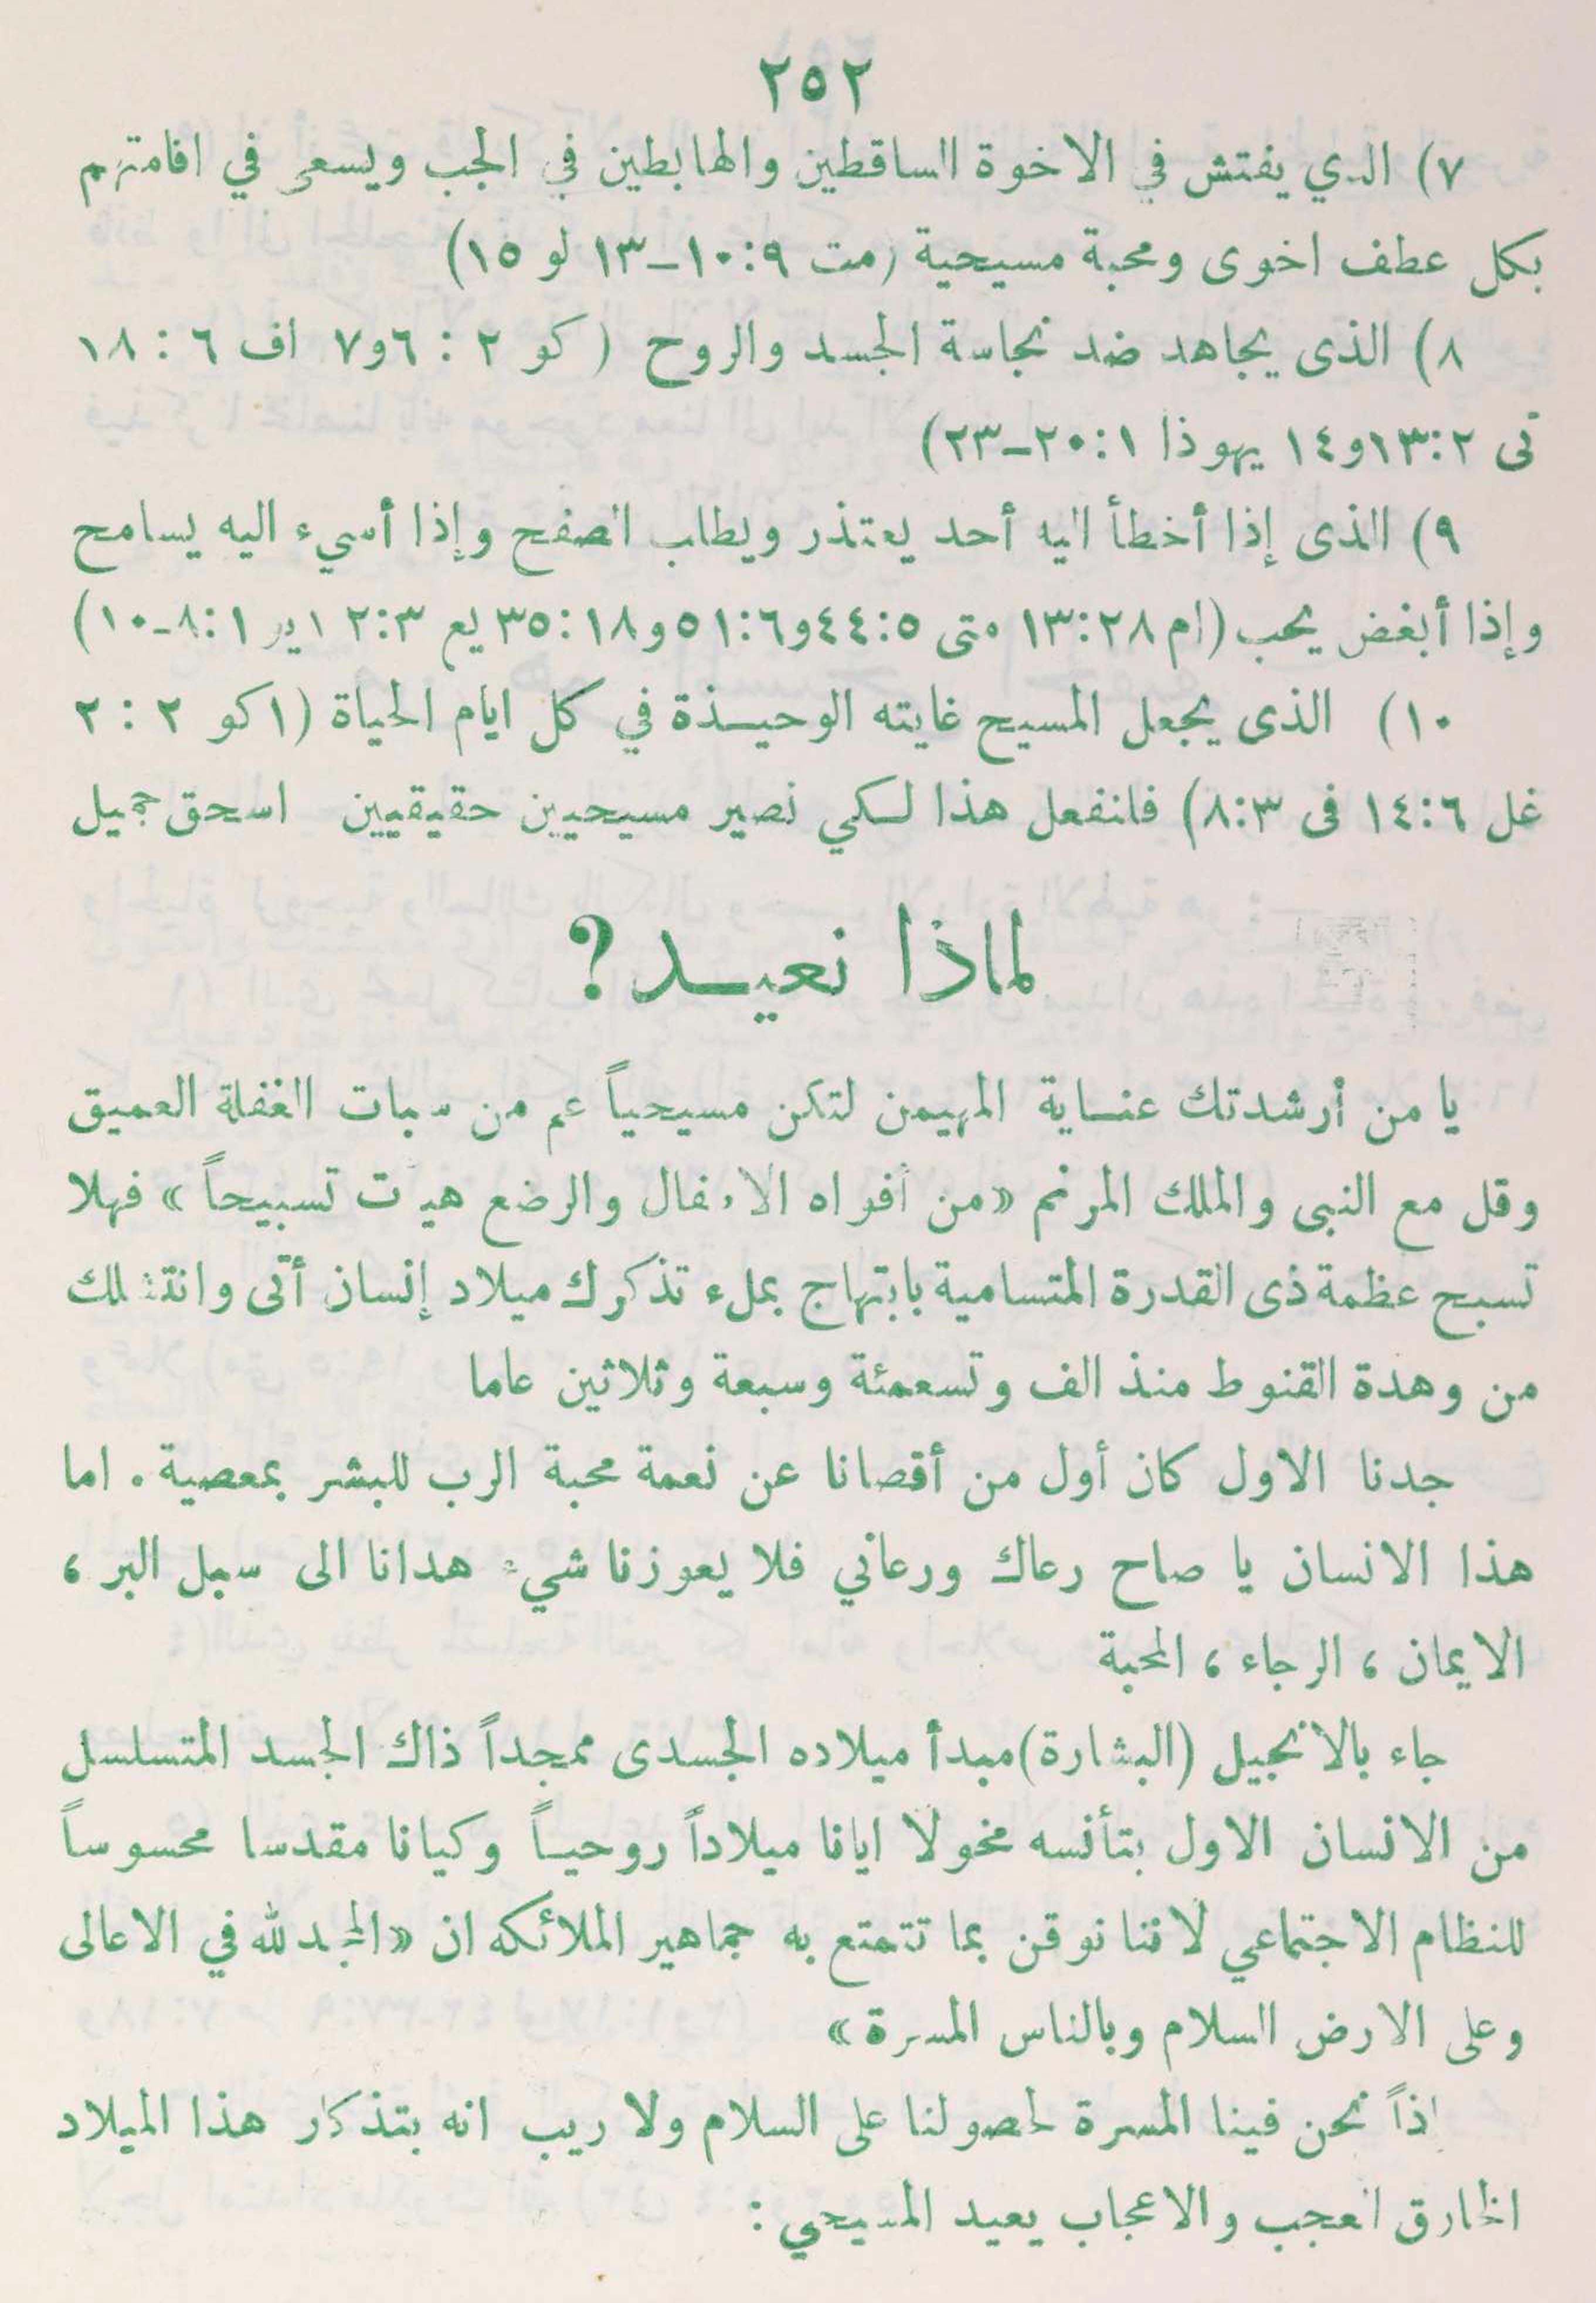 ٢٥٢
٧) الذي يفتش في الاخوة الساقطين والهابطين في الجب ويسعى في اقامتهم
بكل عطف اخوى ومحبة مسيحية (مت ٩:١٠-١٣ لو ١٥)
٨) الذى يجاهد ضد نجاسة الجسد والروح ( كو ٢ : ٦و٧ اف ٦ : ١٨
تى ٢:١٣و١٤ يهوذا ١:٢٠-٢٣)
٩) الذى إذا أخطأ اليه أحد يعتذر ويطلب الصفح وإذا أسيء اليه يسامح
وإذا أبغض يحب (ام ٢٨:١٣ متى ٥:٤٤و٦:٥١و١٨:٣٥ يع ٣:٢ ١ير ١:٨-١٠)
١٠) الذى يجعل المسيح غايته الوحيـذة في كل ايام الحياة (١ كو ٢ : ٢
غل ٦:١٤ فى ٣:٨) فانفعل هذا لكي نصير مسيحيين حقيقيين اسحق جميل
لماذا نعيـد؟
يا من أرشدتك عنـاية المهيمن لتكن مسيحياً عم من سبات الغفلة العميق
وقل مع النبى والملك المرنم «من أفواه الاطفال والرضع هيأت تسبيحاً» فهلا
تسبح عظمة ذى القدرة المتسامية بابتهاج بملء تذكرك ميلاد إنسان أتى وانتشلك
من وهدة القنوط منذ الف وتسعمئة وسبعة وثلاثين عاما
جدنا الاول كان أول من أقصانا عن نعمة محبة الرب للبشر بمعصية . اما
هذا الانسان يا صاح رعاك ورعاني فلا يعوزنا شيء هدانا الى سبل البر ،
الايمان ، الرجاء ، المحبة
جاء بالانجيل (البشارة) مبدأ ميلاده الجسدى ممجداً ذاك الجسد المتسلسل
من الانسان الاول بتأنسه مخولا ايانا ميلاداً روحيـاً وكيانا مقدسا محسوساً
للنظام الاجتماعي لاننا نوقن بما تتمتع به جماهير الملائكه ان «المجد لله في الاعالى
وعلى الارض السلام وبالناس المسرة»
اذاً نحن فينا المسرة لحصولنا على السلام ولا ريب انه بتذكار هذا الميلاد
الخارق العجب والاعجاب يعيد المسيحي :